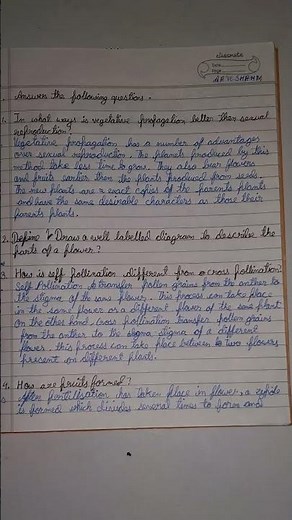 classmate
Date
Page
Answer the following questions.
1. In what ways is vegetative propagation better than sexual
reproduction?
Vegetative propagation has a number of advantages
over sexual reproduction. The planets produced by this
method take less time to grow. They also bear flowers
and fruits earlier then the plants produced from seeds.
The new plants are exact copies of the parents plants
and have the same desirable characters as those their
parents plants.
2. Define & Draw a well labelled diagram to describe the
parts of a flower?
3. How is self Pollination different from a cross Pollination?
Self Pollination to transfer pollen grains from the anther to
the stigma of the same flower. This process can take place
in the same flower or a different flower of the same plant
On the other hand, cross pollination transfer pollen grains
from the anther to the stigma stigma of a different
flower. this process can take place between to two flowers
present on different plants.
4. How are fruits formed?
After fertilisation has taken place in flower, a zygote
is formed which divides several times to form and